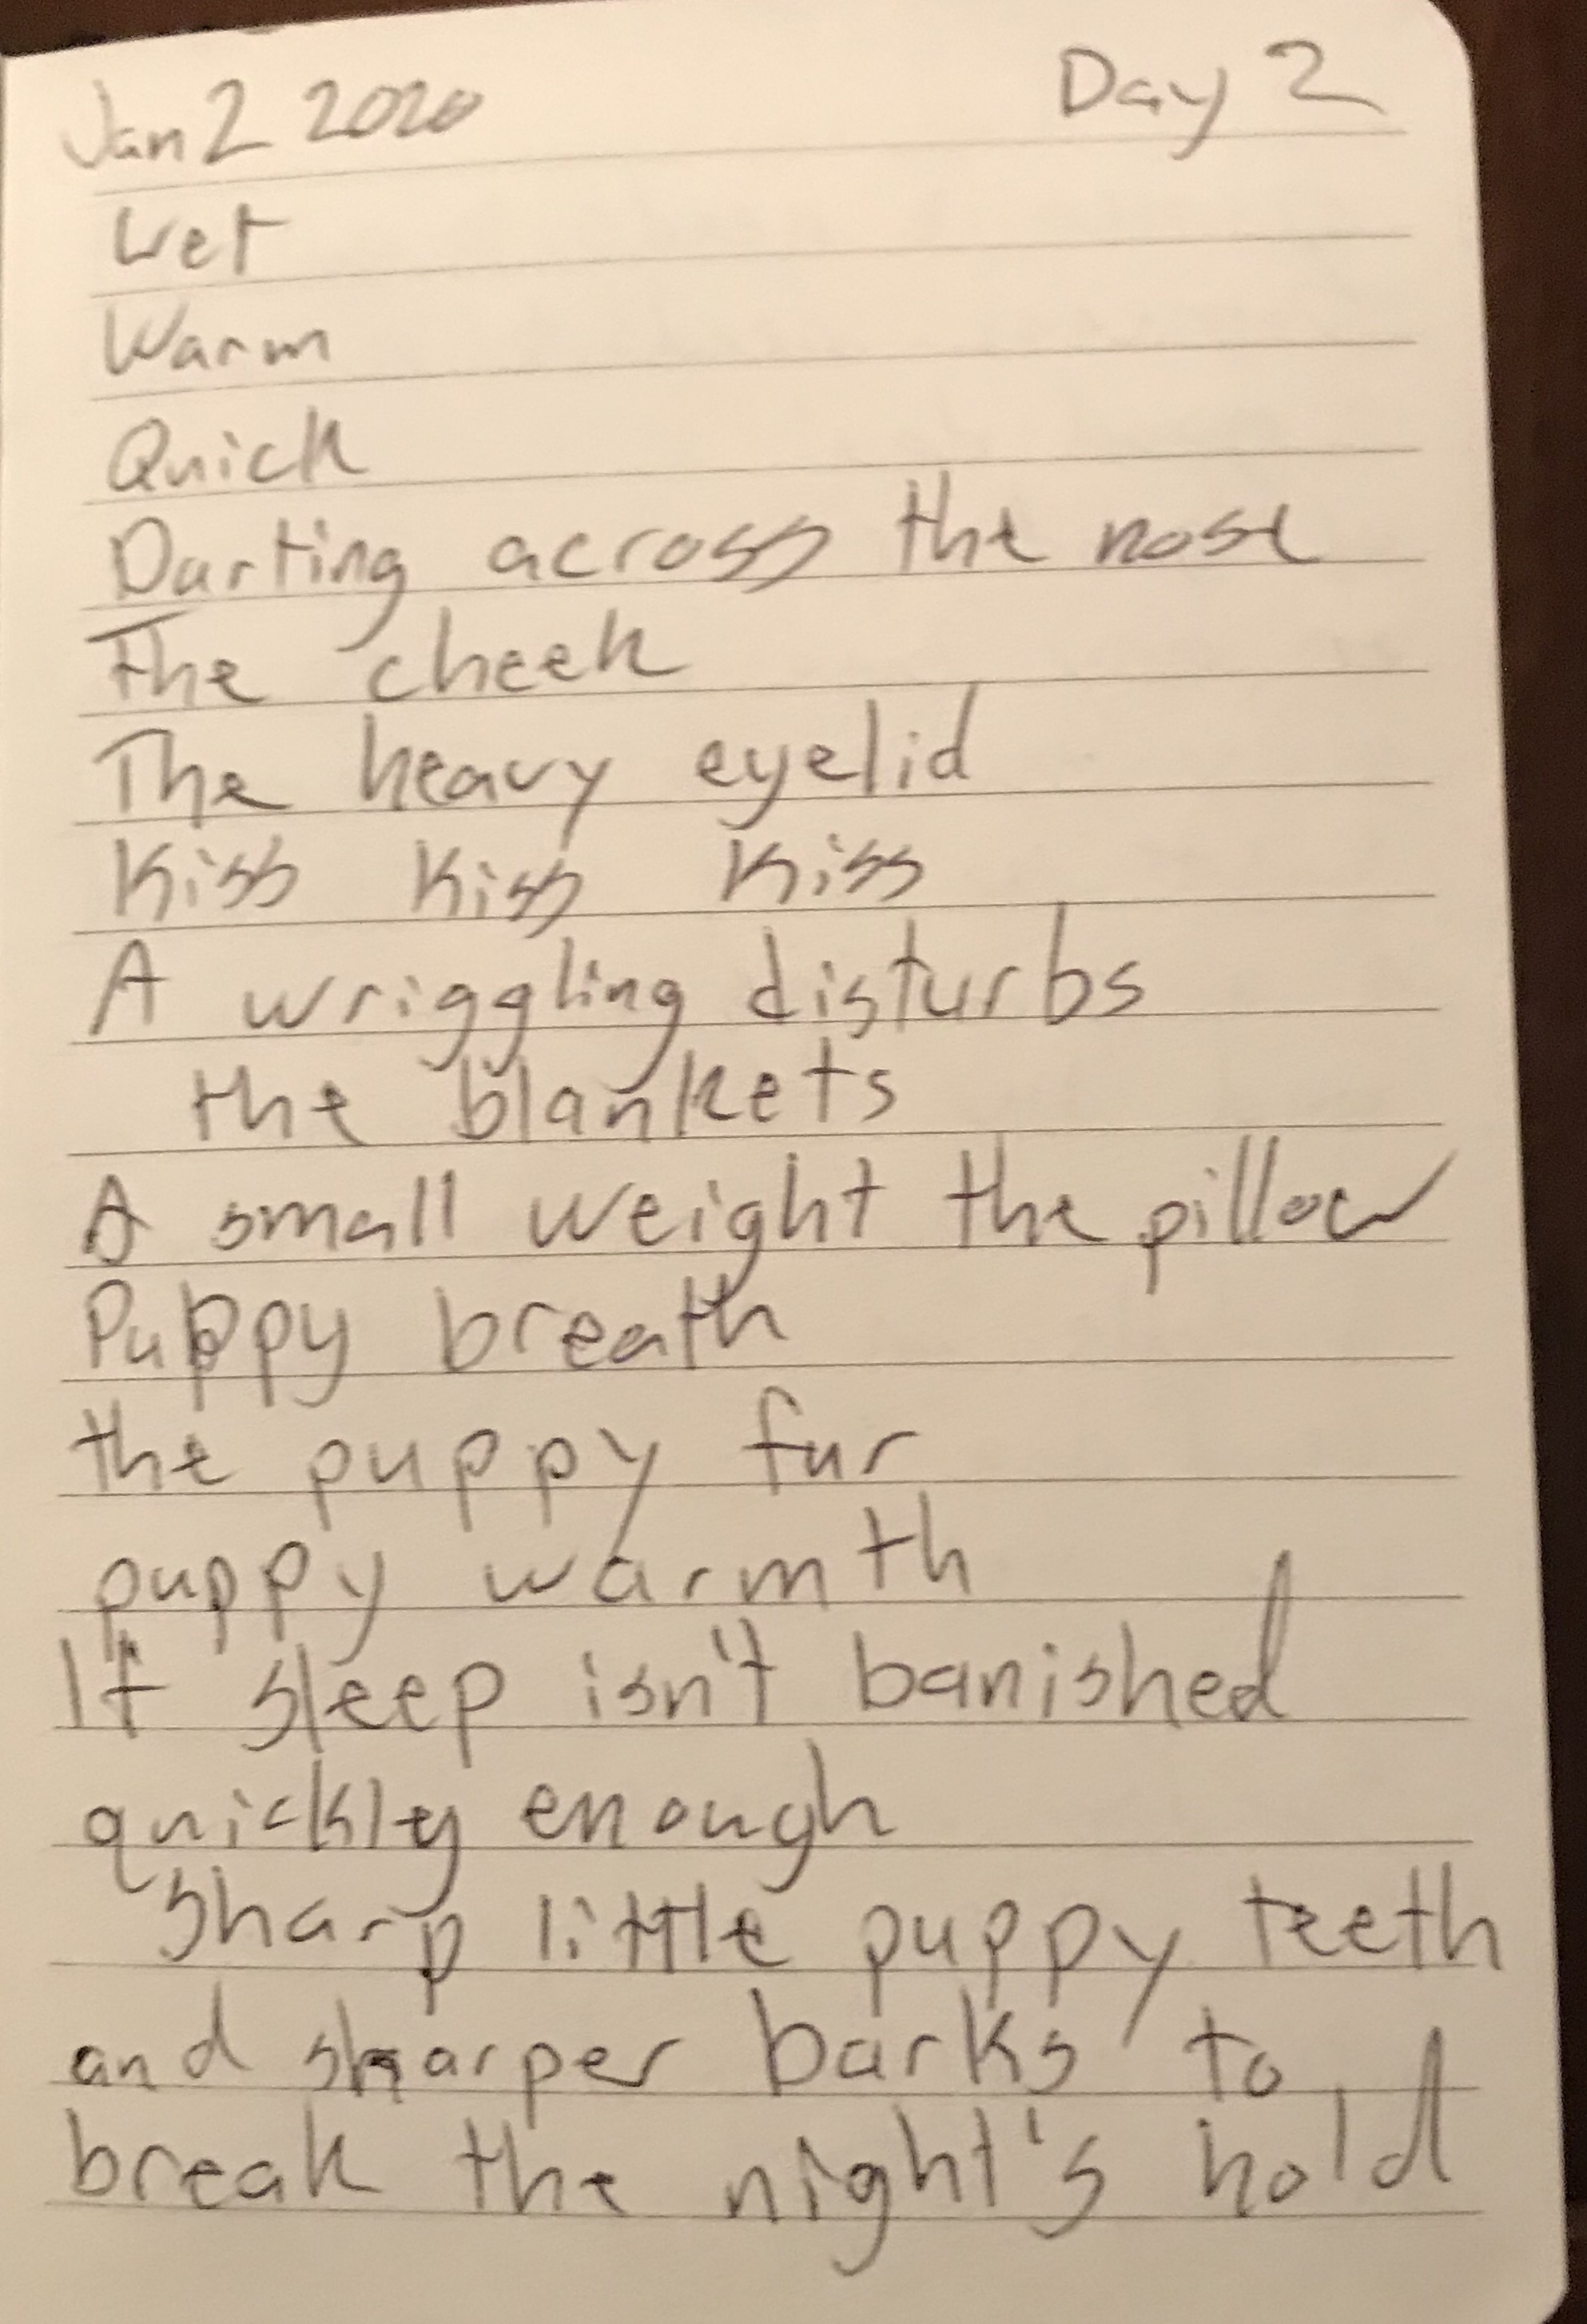 Jan 2 2020 Day 2
Wet
Warm
Quick
Darting across the nose
The cheek
The heavy eyelid
Kiss Kiss Kiss
A wriggling disturbs
the blankets
A small weight the pillow
Puppy breath
the puppy fur
puppy warmth
If sleep isn't banished
quickly enough
sharp little puppy teeth
and sharper barks to
break the night's hold